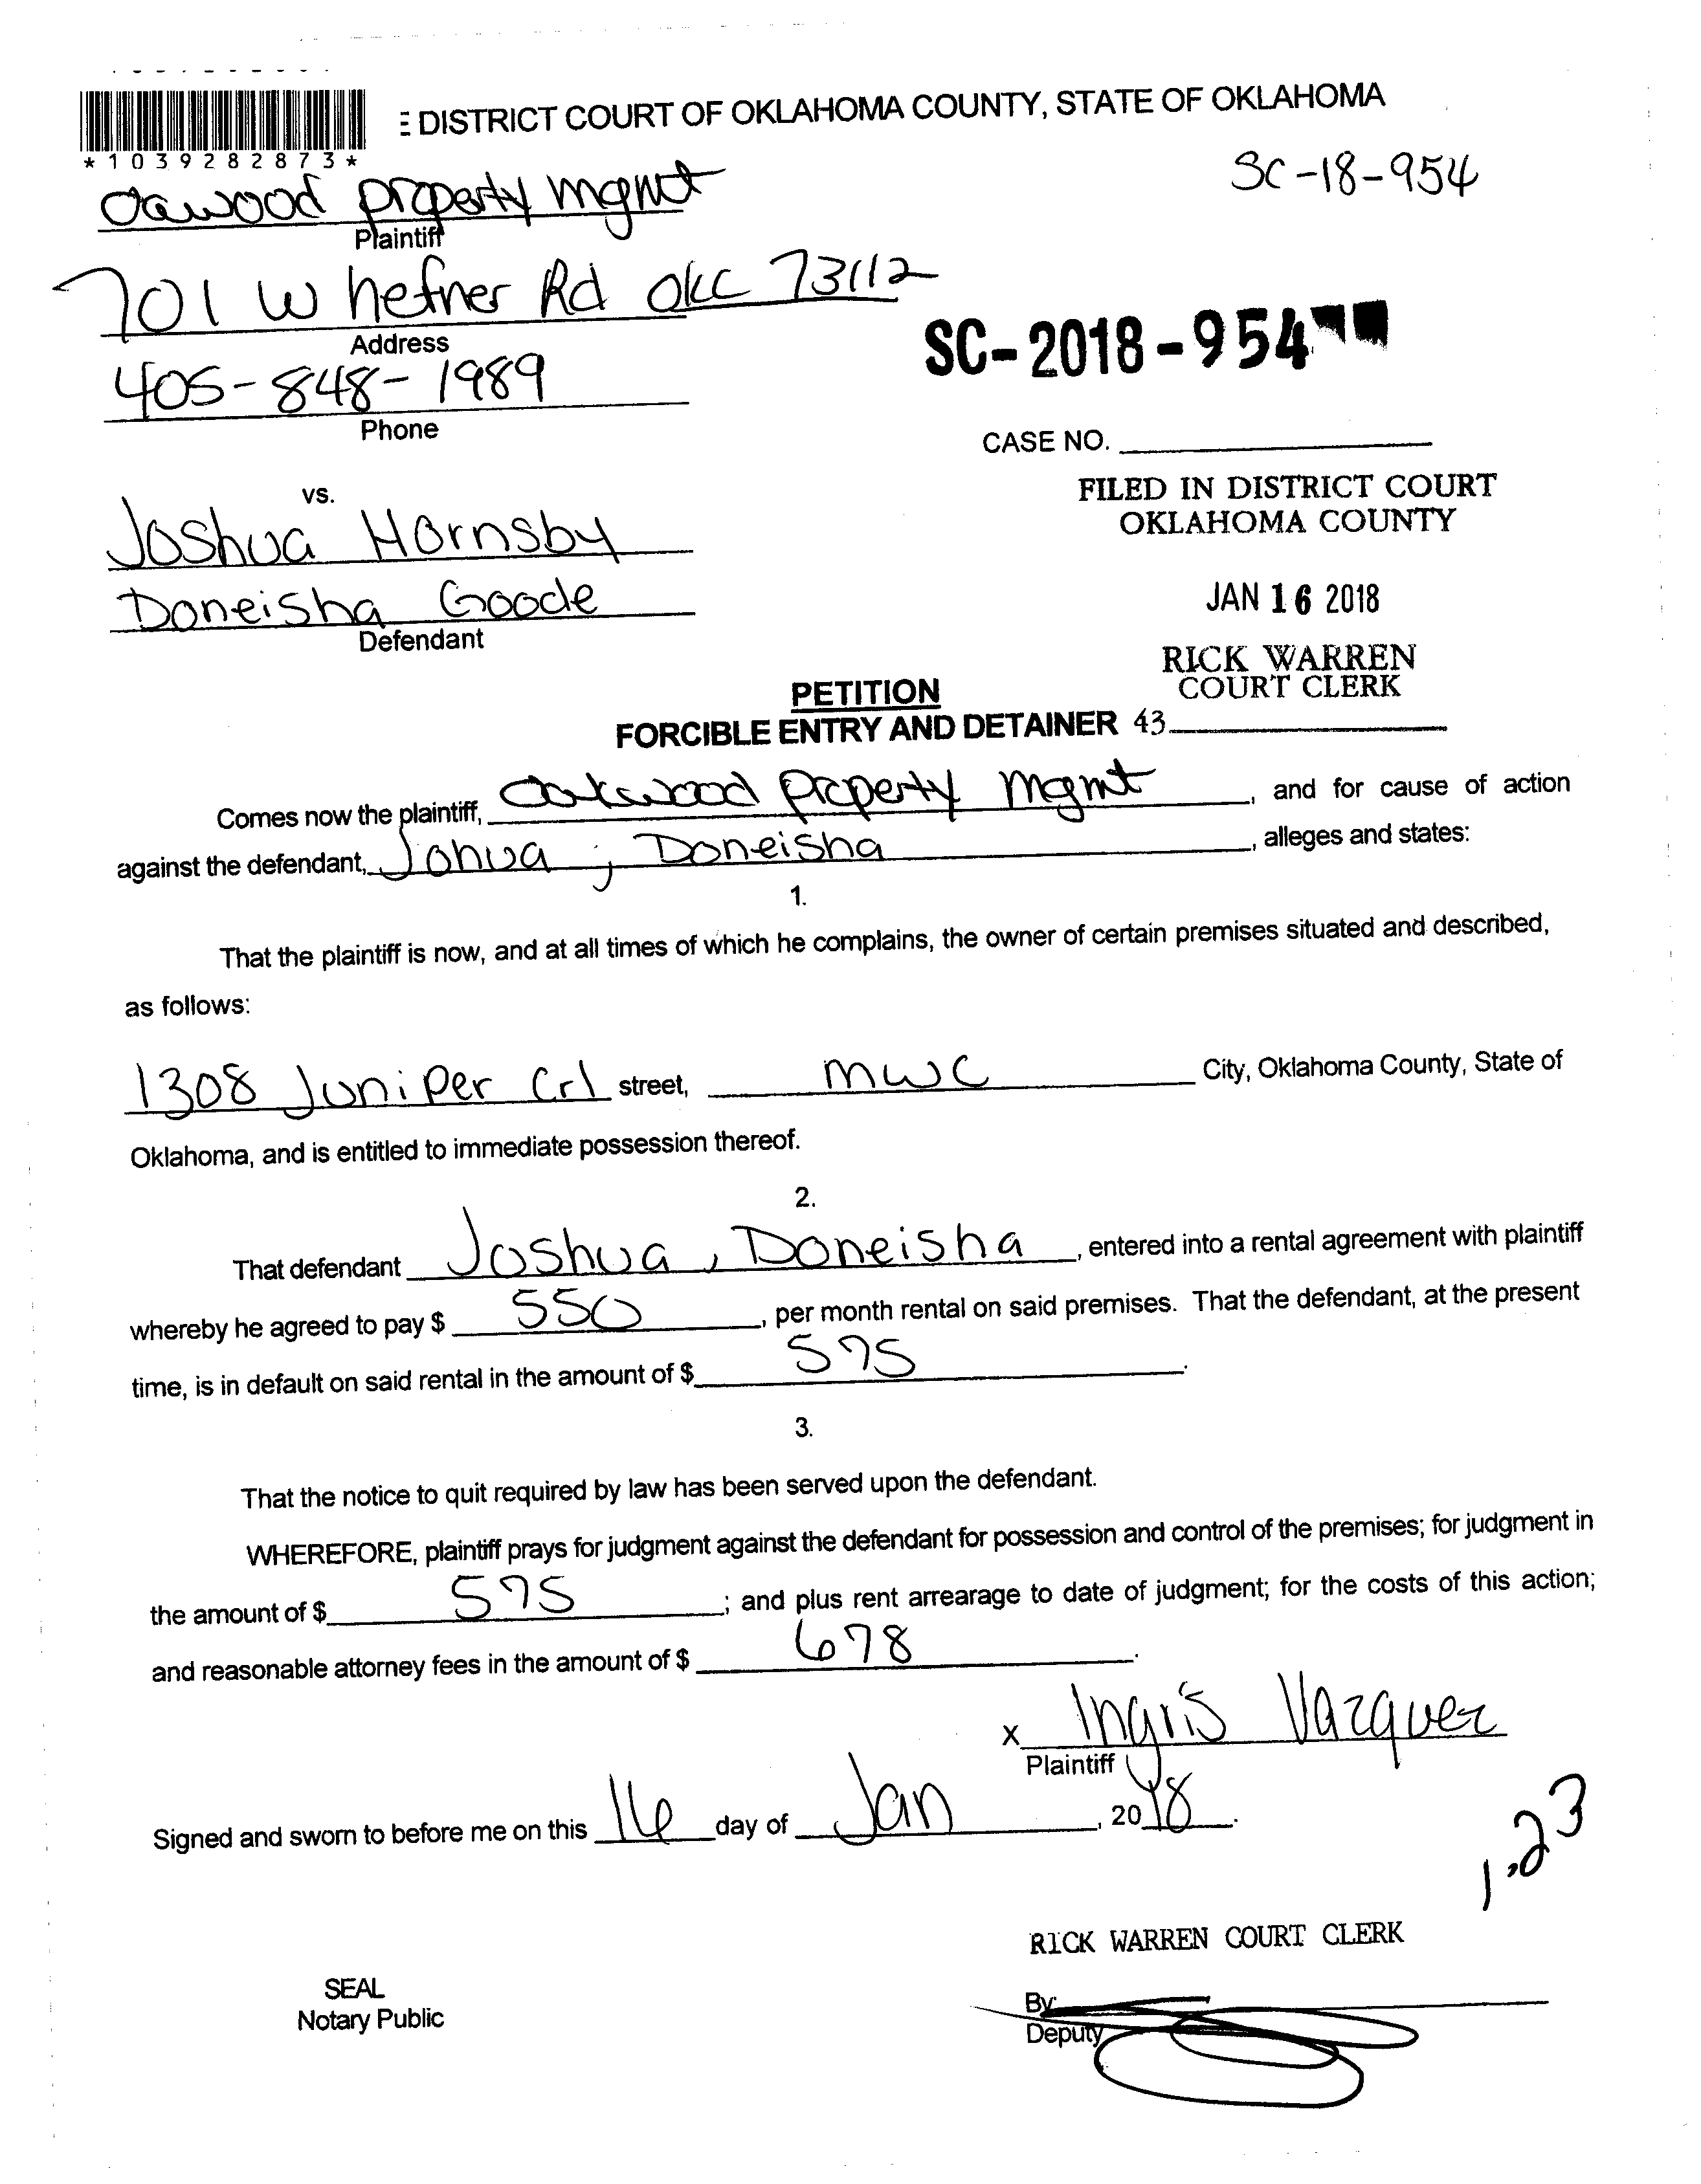 E DISTRICT COURT OF OKLAHOMA COUNTY, STATE OF OKLAHOMA
*1039282873*
SC-18-954
Oawood property mgmt
Plaintiff
701 W hefner Rd OKC 73112
Address
SC-2018-954
405-848-1989
Phone
CASE NO.
FILED IN DISTRICT COURT
OKLAHOMA COUNTY
vs.
Joshua Hornsby
Doneisha Goode
Defendant
JAN 16 2018
RICK WARREN
COURT CLERK
PETITION
FORCIBLE ENTRY AND DETAINER 43
Comes now the plaintiff, Oakwood property mgmt, and for cause of action
against the defendant, Johua ; Doneisha, alleges and states:
1.
That the plaintiff is now, and at all times of which he complains, the owner of certain premises situated and described,
as follows:
1308 Juniper Crl street, MWC City, Oklahoma County, State of
Oklahoma, and is entitled to immediate possession thereof.
2.
That defendant Joshua, Doneisha, entered into a rental agreement with plaintiff
whereby he agreed to pay $ 550, per month rental on said premises. That the defendant, at the present
time, is in default on said rental in the amount of $ 575.
3.
That the notice to quit required by law has been served upon the defendant.
WHEREFORE, plaintiff prays for judgment against the defendant for possession and control of the premises; for judgment in
the amount of $ 575; and plus rent arrearage to date of judgment; for the costs of this action;
and reasonable attorney fees in the amount of $ 678.
x Ingris Vazquez
Plaintiff
Signed and sworn to before me on this 16 day of Jan, 2018.
1,23
RICK WARREN COURT CLERK
SEAL
Notary Public
By:
Deputy